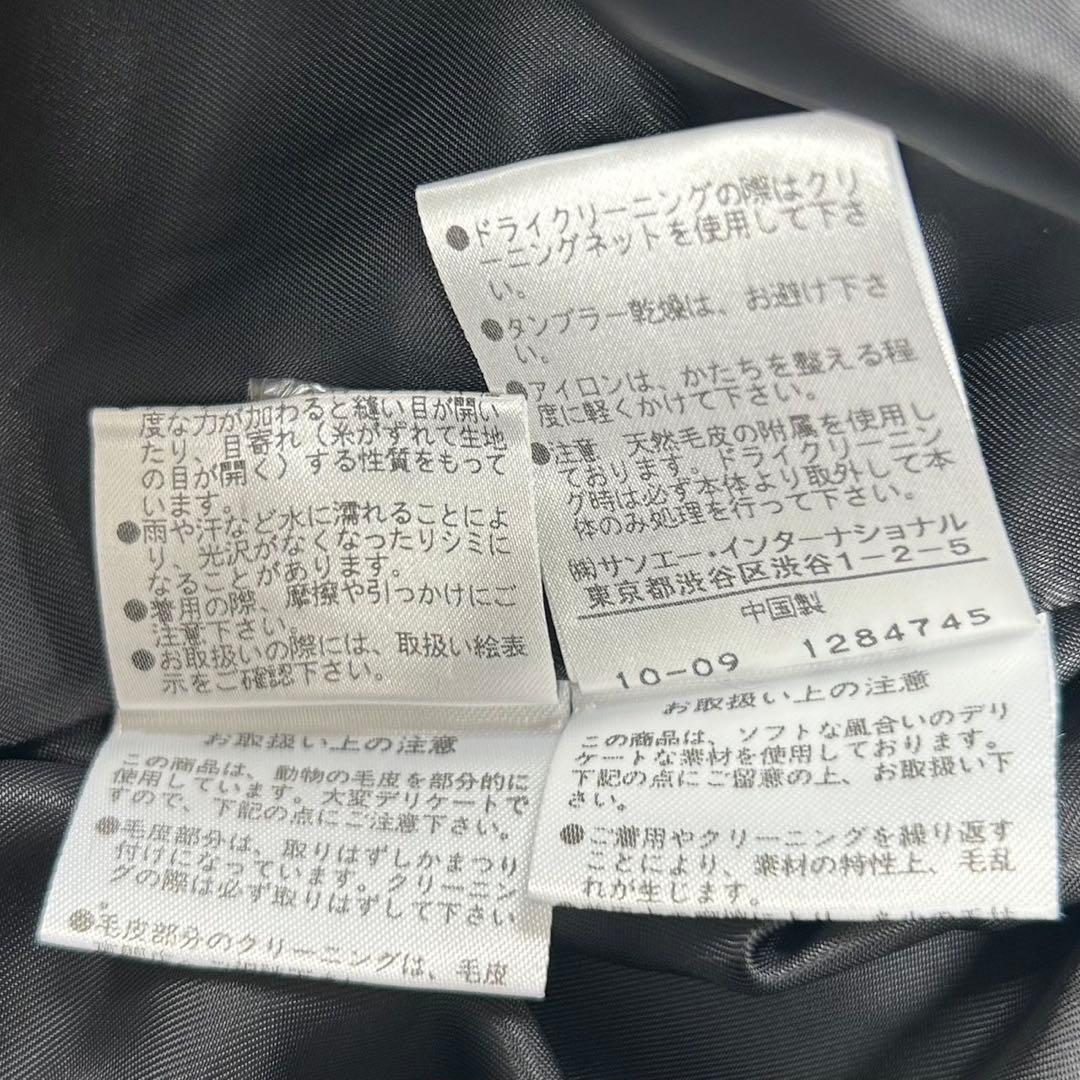 ●ドライクリーニングの際はクリ
ーニングネットを使用して下さ
い。
●タンブラー乾燥は、お避け下さ
い。
●アイロンは、かたちを整える程
度に軽くかけて下さい。
●注意 天然毛皮の附属を使用し
ております。ドライクリーニン
グ時は必ず本体より取外して本
体のみ処理を行って下さい。
㈱サンエー・インターナショナル
東京都渋谷区渋谷1-2-5
中国製
10-09 1284745
お取扱い上の注意
この商品は、ソフトな風合いのデリ
ケートな素材を使用しております。
下記の点にご留意の上、お取扱い下
さい。
●ご着用やクリーニングを繰り返す
ことにより、素材の特性上、毛乱
れが生じます。
度な力が加わると縫い目が開い
たり、目寄れ（糸がずれて生地
の目が開く）する性質をもって
います。
●雨や汗など水に濡れることによ
り、光沢がなくなったりシミに
なることがあります。
●着用の際、摩擦や引っかけにご
注意下さい。
●お取扱いの際には、取扱い絵表
示をご確認下さい。
お取扱い上の注意
この商品は、動物の毛皮を部分的に
使用しています。大変デリケートで
すので、下記の点にご注意下さい。
●毛皮部分は、取りはずしかまつり
付けになっています。クリーニン
グの際は必ず取りはずして下さい
。
●毛皮部分のクリーニングは、毛皮